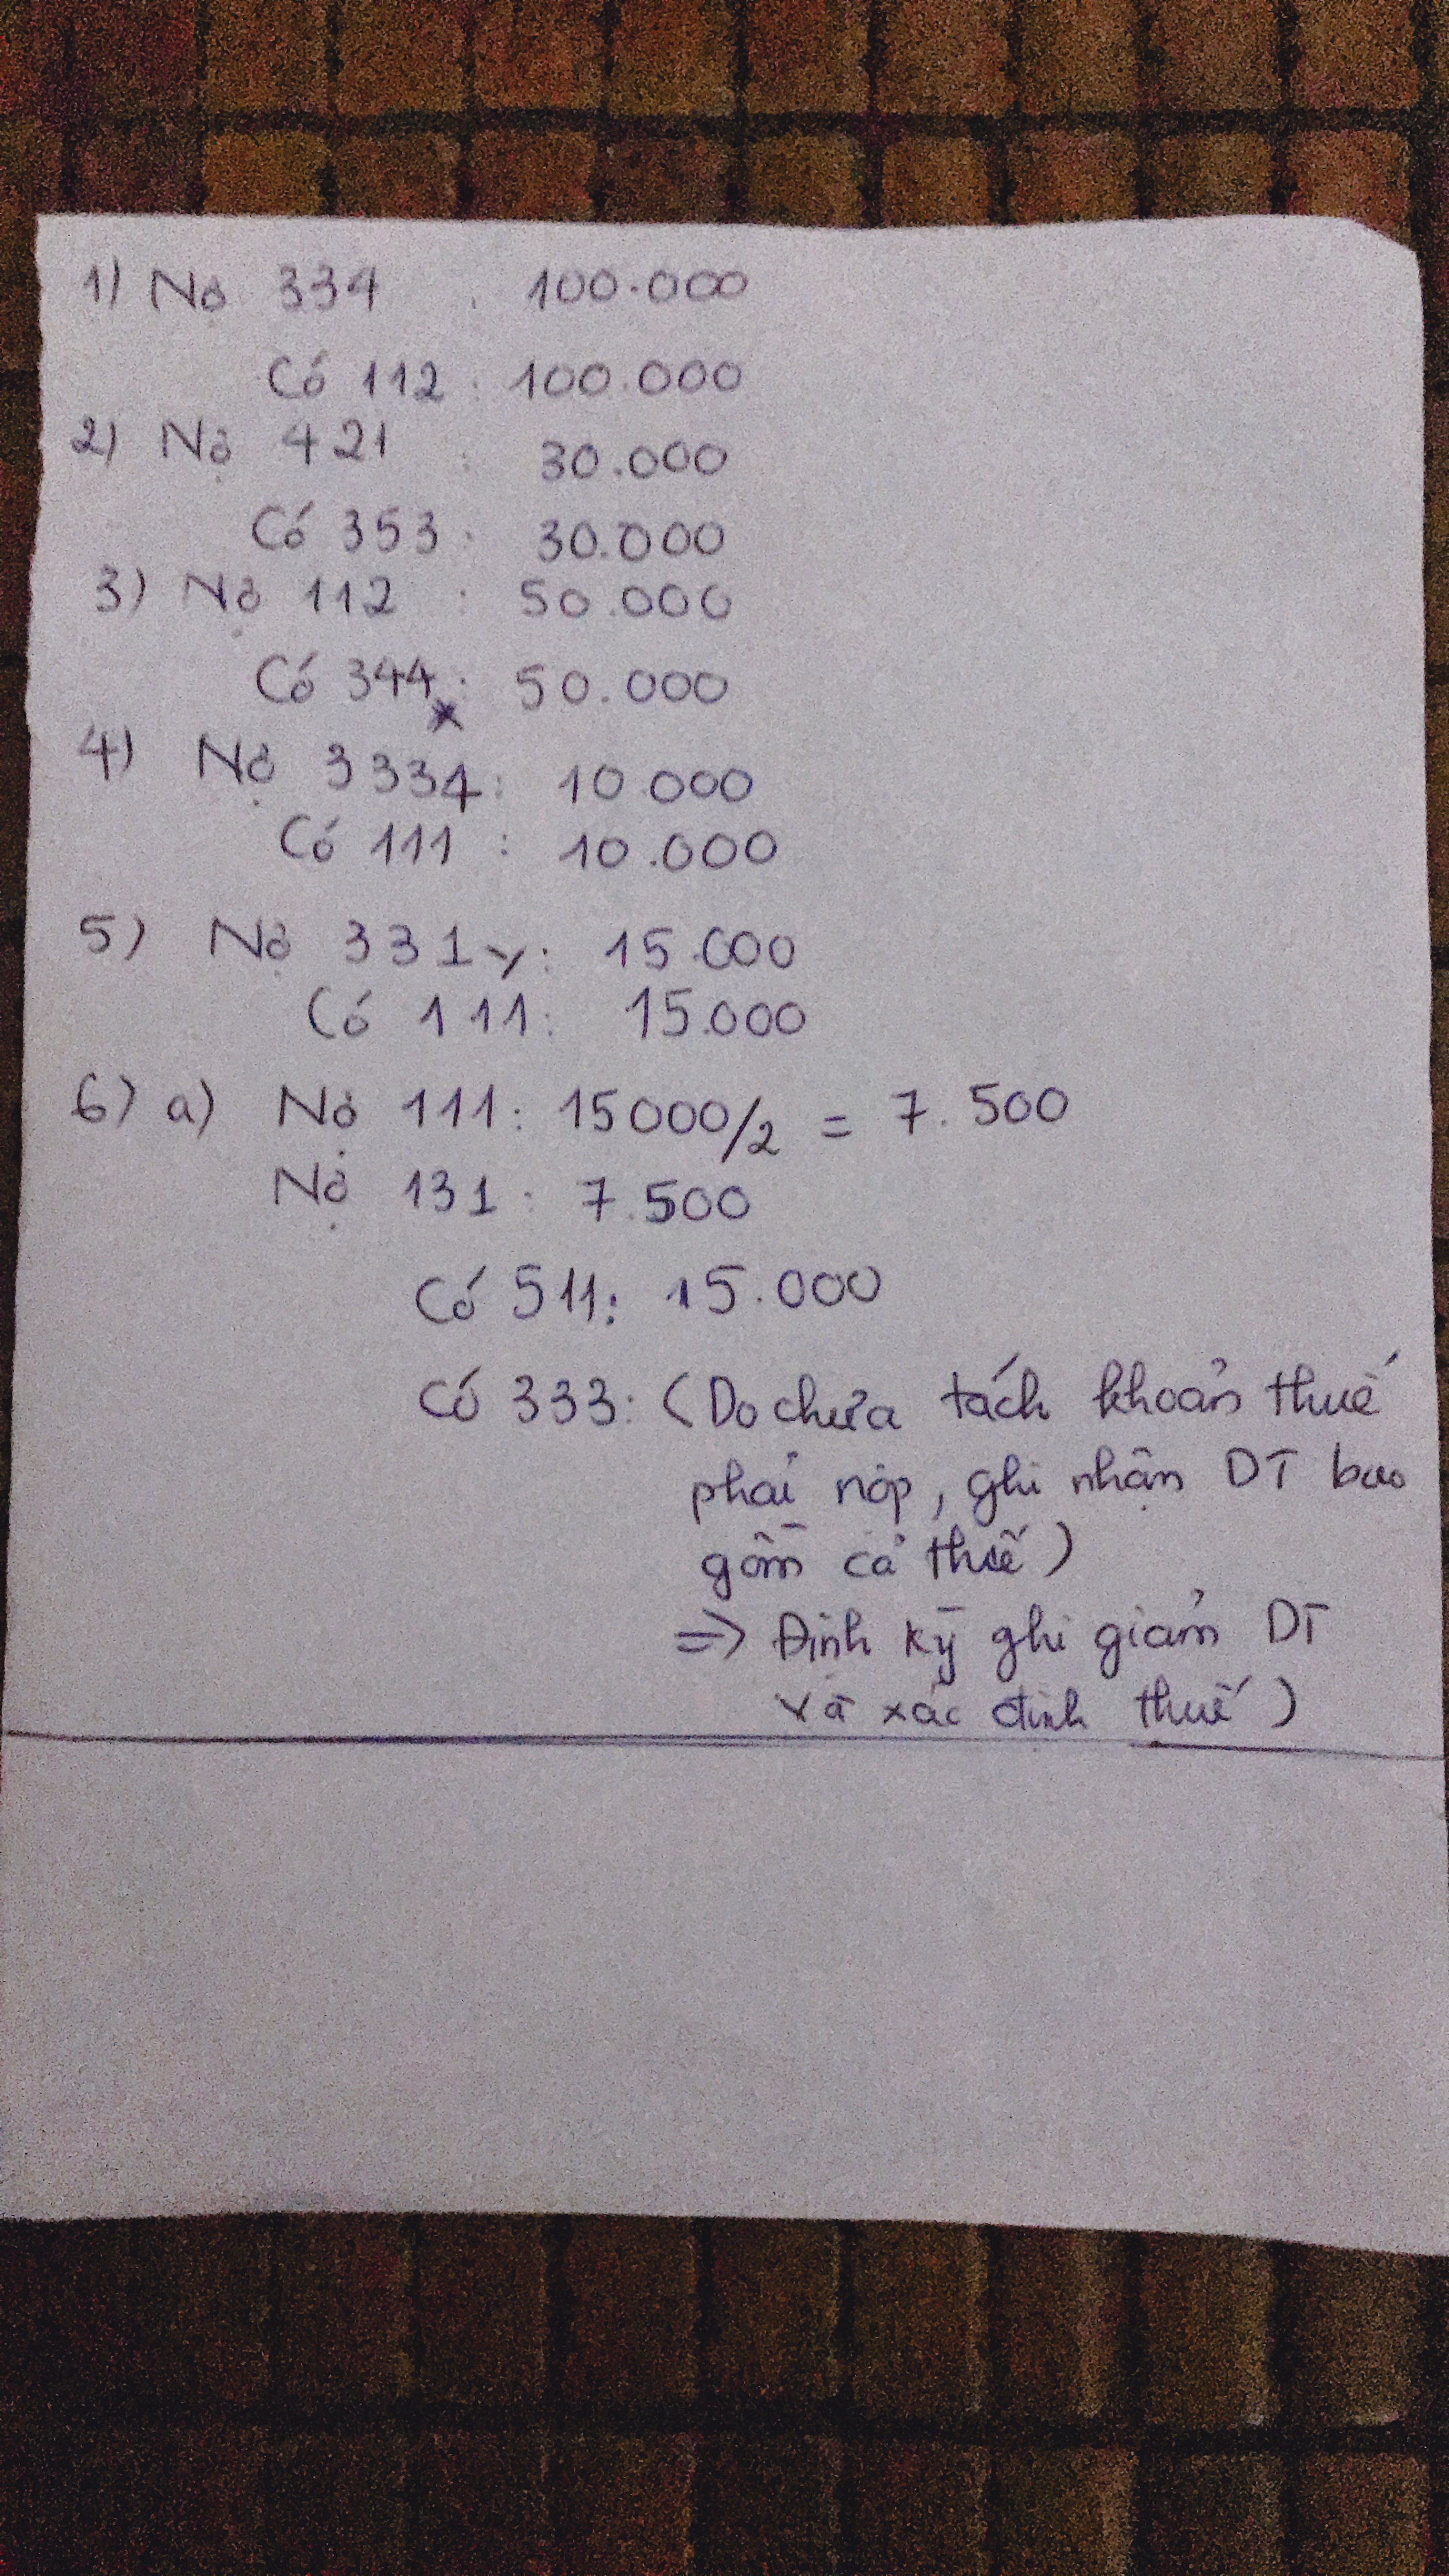 1) Nợ 334 : 100.000
Có 112 : 100.000
2) Nợ 421 : 30.000
Có 353 : 30.000
3) Nợ 112 : 50.000
Có 344x : 50.000
4) Nợ 3334 : 10.000
Có 111 : 10.000
5) Nợ 331y : 15.000
Có 111 : 15.000
6) a) Nợ 111 : 15000/2 = 7.500
Nợ 131 : 7.500
Có 511 : 15.000
Có 333 : (Do chưa tách khoản thuế
phải nộp, ghi nhận DT bao
gồm cả thuế)
=> Định kỳ ghi giảm DT
và xác định thuế)